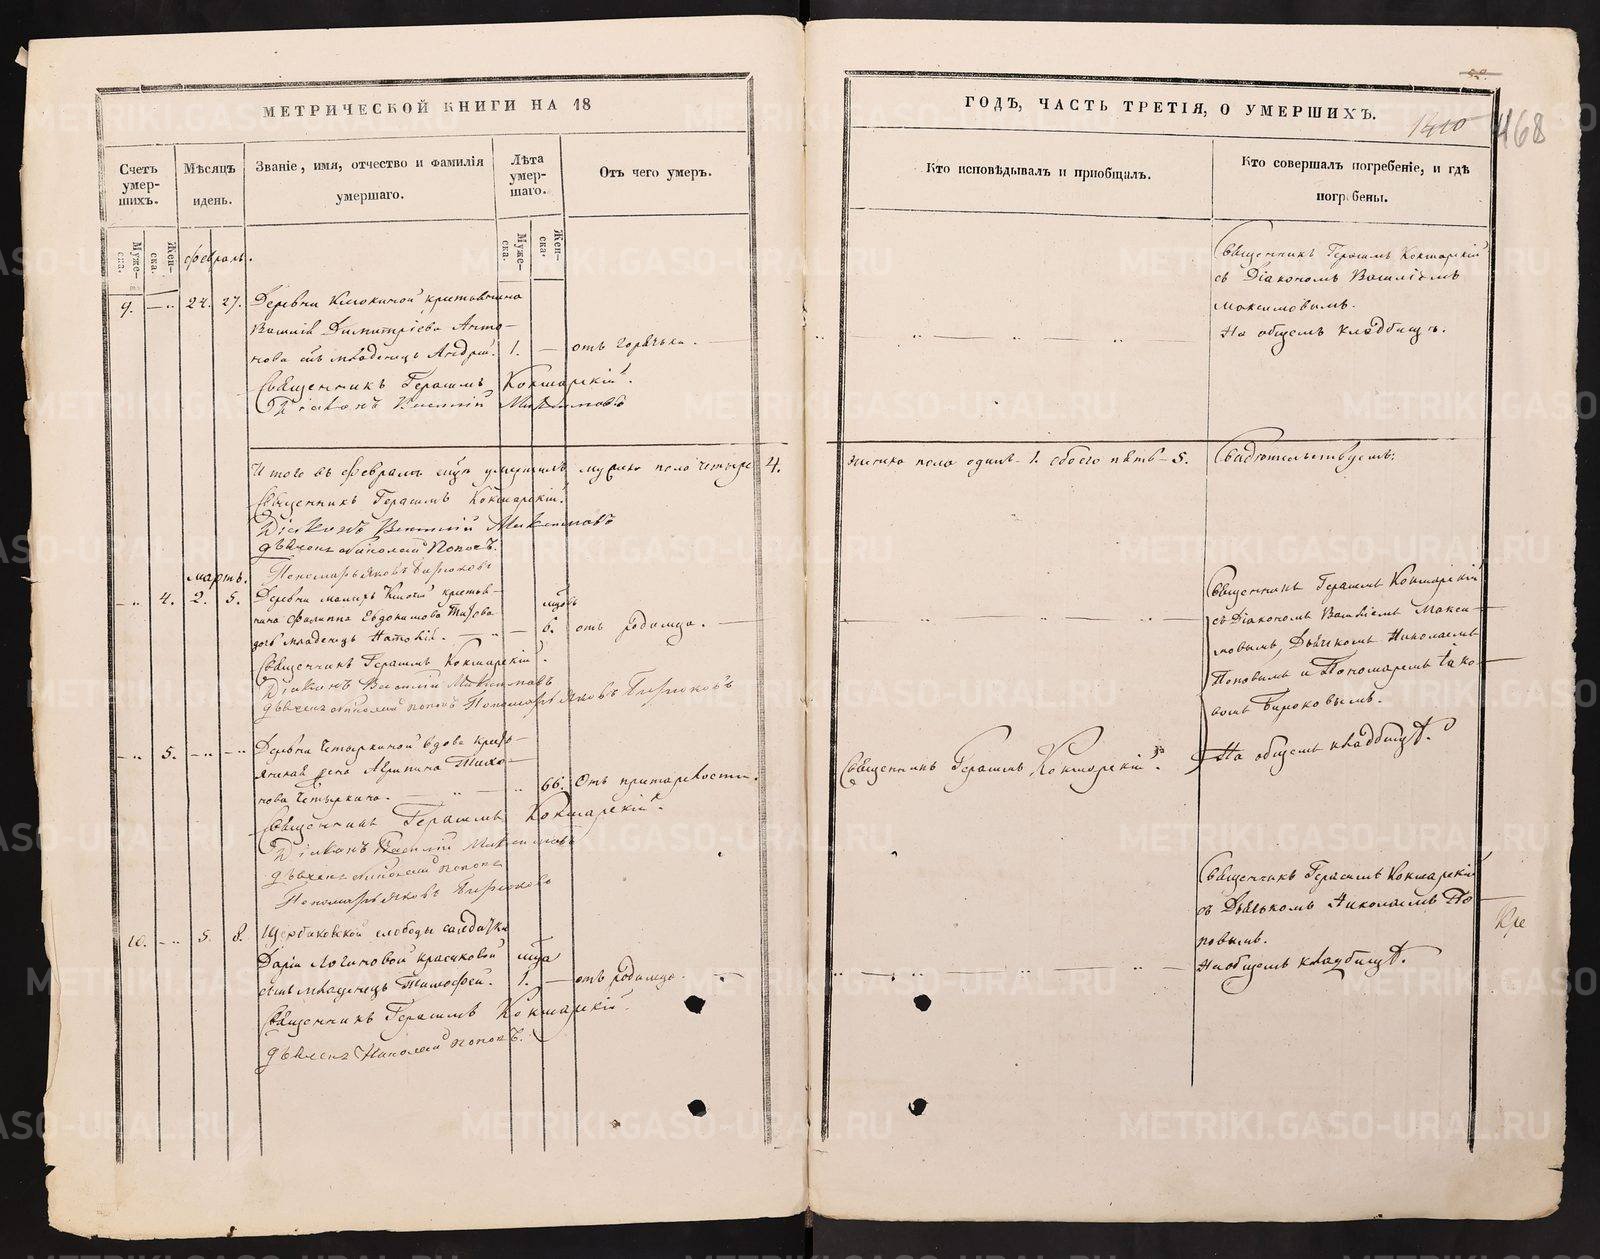 МЕТРИЧЕСКОЙ КНИГИ НА 18
Счетъ умер-шихъ.
Мѣсяцъ и день.
Званіе, имя, отчество и фамилія умершаго.
Лѣта умер-шаго.
Отъ чего умеръ.
Муже-ска.
Жен-ска.
Муже-ска.
Жен-ска.
февраль.
9. 24. 27. Деревни крестьянина
Василія Димитріева Анто-
нова сынъ младенецъ Андрей. 1. — отъ горячки.
Священникъ Герасимъ Кокшарскій.
Діаконъ Василій Максимовъ
Итого въ февралѣ умершихъ мужеска пола четыре 4.
Священникъ Герасимъ Кокшарскій.
Діаконъ Василій Максимовъ
дьячекъ Николай Поповъ.
мартъ.
Пономарь Яковъ Бирюковъ
4. 2. 5. Деревни крестья-
нина Филиппа Евдокимова
дочь младенецъ 6. отъ родимца.
Священникъ Герасимъ Кокшарскій.
Діаконъ Василій Максимовъ
дьячекъ Николай Поповъ Пономарь Яковъ Бирюковъ
5. Деревни Четыркиной вдова кресть-
янская жена Агрипина Тихо-
нова Четыркина. 66. Отъ престарелости.
Священникъ Герасимъ Кокшарскій.
Діаконъ Василій Максимовъ
дьячекъ Николай Поповъ
Пономарь Яковъ Бирюковъ
10. 5. 8. Щербаковской слободы солдатки
Даріи Логиновой Красиковой
сынъ младенецъ Тимофей. 1. — отъ родимца.
Священникъ Герасимъ Кокшарскій.
дьячекъ Николай Поповъ.
52.
ГОДЪ, ЧАСТЬ ТРЕТІЯ, О УМЕРШИХЪ.
1410
468
Кто исповѣдывалъ и пріобщалъ.
Кто совершалъ погребеніе, и гдѣ погребены.
Священникъ Герасимъ Кокшарскій
съ Діакономъ Василіемъ
Максимовымъ.
На общемъ кладбищѣ.
женска пола одинъ — 1. обоего пять — 5. Свидѣтельствуемъ:
Священникъ Герасимъ Кокшарскій
съ Діакономъ Василіемъ Макси-
мовымъ, Дьячкомъ Николаемъ
Поповымъ и Пономаремъ Іако-
вомъ Бирюковымъ.
На общемъ кладбищѣ.
Священникъ Герасимъ Кокшарскій.
Священникъ Герасимъ Кокшарскій
съ Дьячкомъ Николаемъ По-
повымъ.
На общемъ кладбищѣ.
METRIKI.GASO-URAL.RU